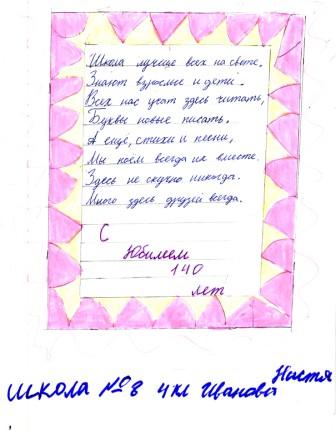 Школа лучше всех на свете.
Знают взрослые и дети.
Всех нас учат здесь читать,
Буквы новые писать.
А ещё, стихи и песни,
Мы поём всегда их вместе.
Здесь не скучно никогда.
Много здесь друзей всегда.
С
Юбилеем
140
лет
школа №8 4 кл Иванова Настя